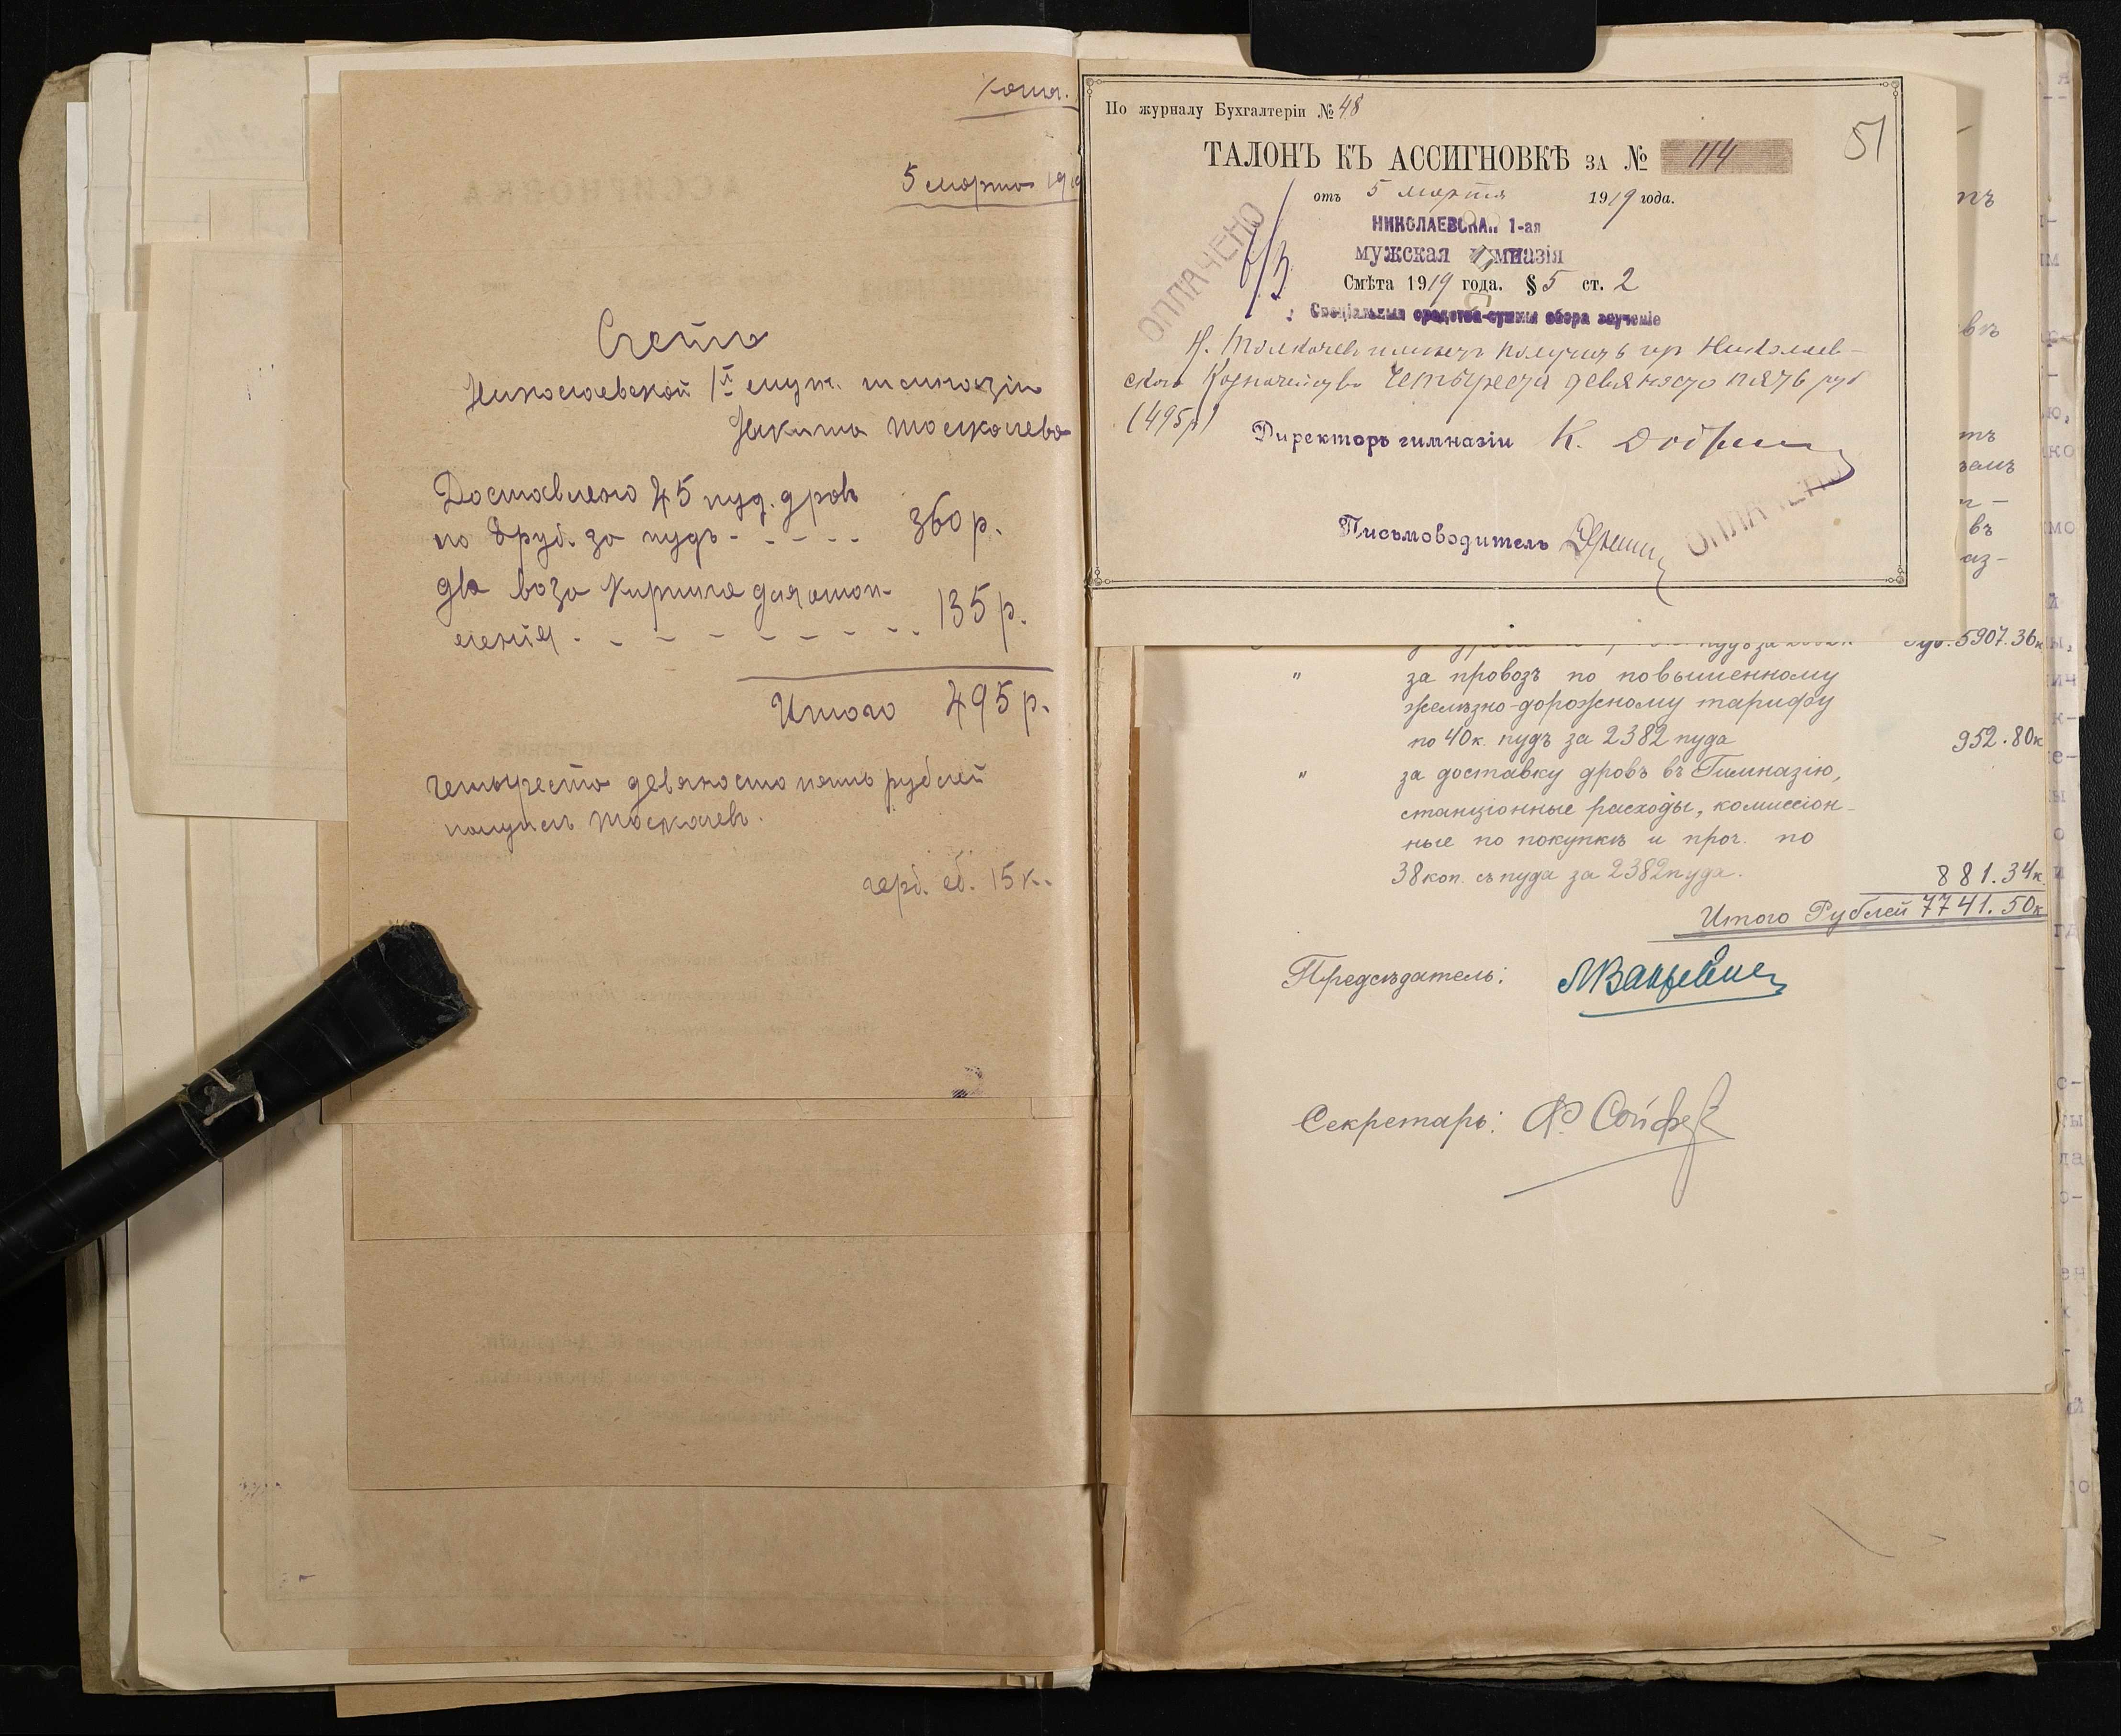 Копія.
5 марта 1919
Счетъ
Николаевской 1й муж. гимназіи
Никита Толкачева
Доставлено 45 пуд. дровъ
по 8 руб. за пудъ - - - - - 360 р.
два воза кирпича для отоп-
ленія - - - - - - - - - 135 р.
Итого 495 р.
Четыреста девяносто пять рублей
получилъ Толкачевъ.
герб. сб. 15 к.
По журналу Бухгалтеріи № 48
51
ТАЛОНЪ КЪ АССИГНОВКѢ ЗА № 114
отъ 5 марта 1919 года.
НИКОЛАЕВСКАЯ 1-ая
мужская гимназія
ОПЛАЧЕНО
Смѣта 1919 года. § 5 ст. 2
Спеціальныя средства-суммы сбора за ученіе
Н. Толкачевъ имѣетъ получить изъ Николаев-
скаго Казначейства четыреста девяносто пять руб
(495 р)
Директоръ гимназіи К.
Письмоводитель
ОПЛАЧЕНО
5907.36к
" за провозъ по повышенному
желѣзно-дорожному тарифу
по 40к. пудъ за 2382 пуда 952.80к
" за доставку дровъ въ Гимназію,
станціонные расходы, комиссіон-
ные по покупкѣ и проч. по
38 коп. съ пуда за 2382 пуда. 881.34к.
Итого Рублей 7741.50к
Предсѣдатель:
Секретарь: